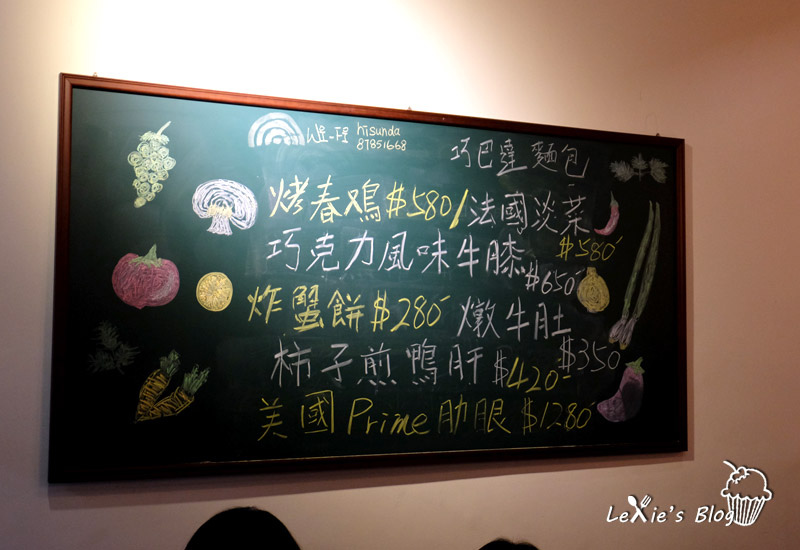 hisunda
87851668
巧巴達麵包
烤春鳮$580/法國淡菜
$580
巧克力風味牛膝
$650
炸蟹餅$280 燉牛肚
$350
柿子煎鴨肝$420-
美國Prime肋眼$1280
LeXie's Blog